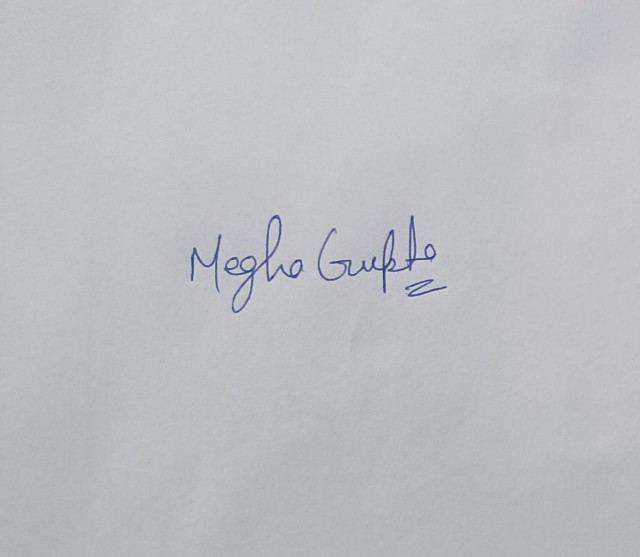 Megha Gupta